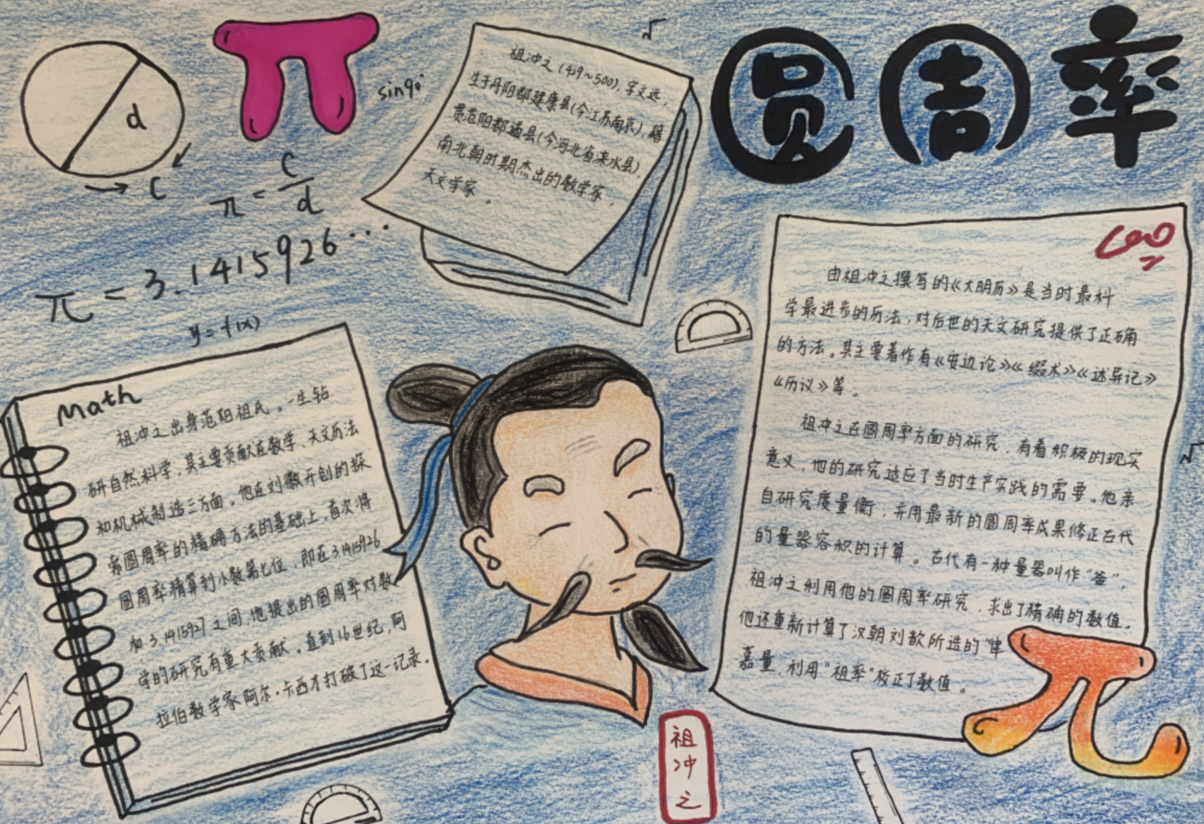 圆周率
d
C
π = C/d
π = 3.1415926...
y=f(x)
√
祖冲之(429~500),字文远,
生于丹阳郡建康县(今江苏南京),籍
贯范阳郡遒县(今河北省涞水县),
南北朝时期杰出的数学家,
天文学家。
100
由祖冲之撰写的《大明历》是当时最科
学最进步的历法,对后世的天文研究提供了正确
的方法。其主要著作有《安边论》《缀术》《述异记》
《历议》等。
祖冲之在圆周率方面的研究,有着积极的现实
意义,他的研究适应了当时生产实践的需要。他亲
自研究度量衡,并用最新的圆周率成果修正古代
的量器容积的计算。古代有一种量器叫作“釜”,
祖冲之利用他的圆周率研究,求出了精确的数值。
他还重新计算了汉朝刘歆所造的“律
嘉量,利用“祖率”校正了数值。
Math
祖冲之出身范阳祖氏。一生钻
研自然科学,其主要贡献在数学、天文历法
和机械制造三方面。他在刘徽开创的探
索圆周率的精确方法的基础上,首次将
圆周率精算到小数第七位,即在3.1415926
和3.1415927之间,他提出的圆周率对数
学的研究有重大贡献。直到16世纪,阿
拉伯数学家阿尔·卡西才打破了这一记录。
祖冲之